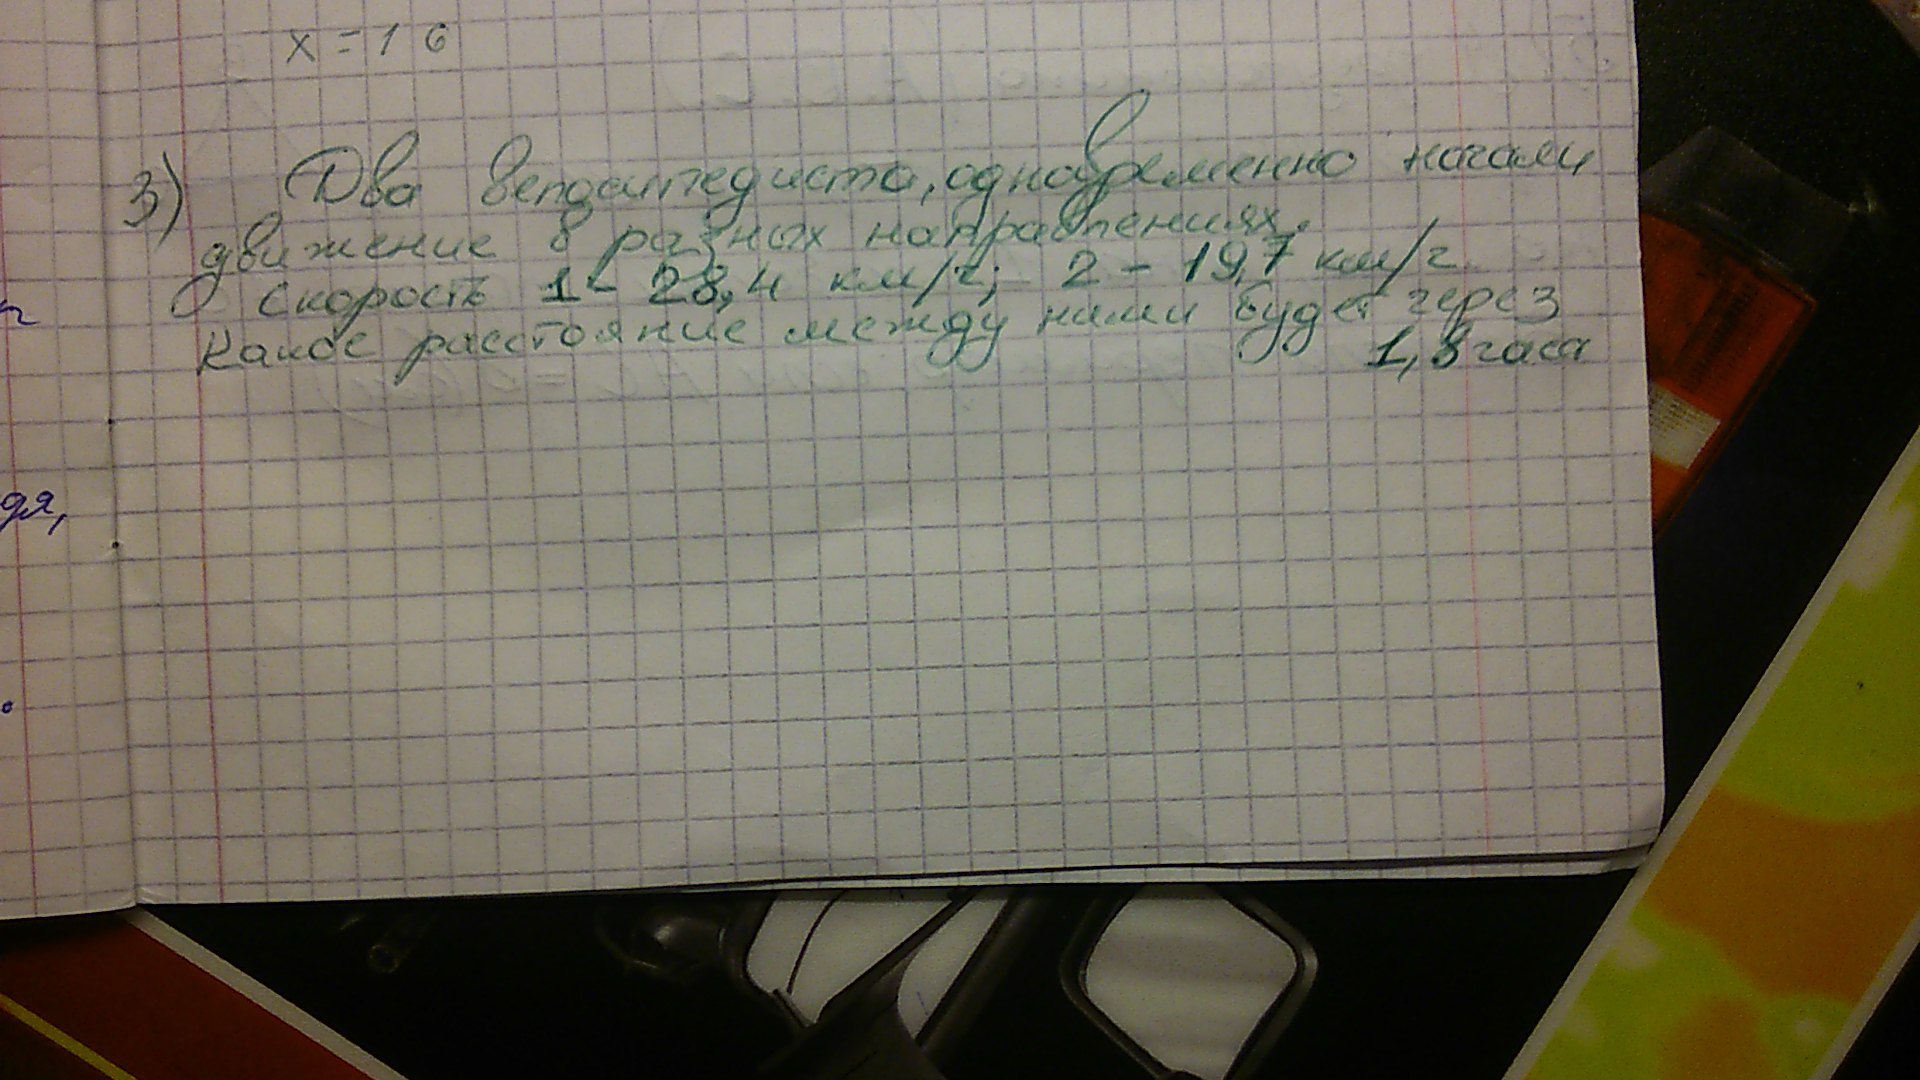 х = 16
3) Два велосипедиста, одновременно начали
движение в разных направлениях.
Скорость 1 - 28,4 км/ч; 2 - 19,7 км/ч.
Какое расстояние между ними будет через
1,8 часа
дя,